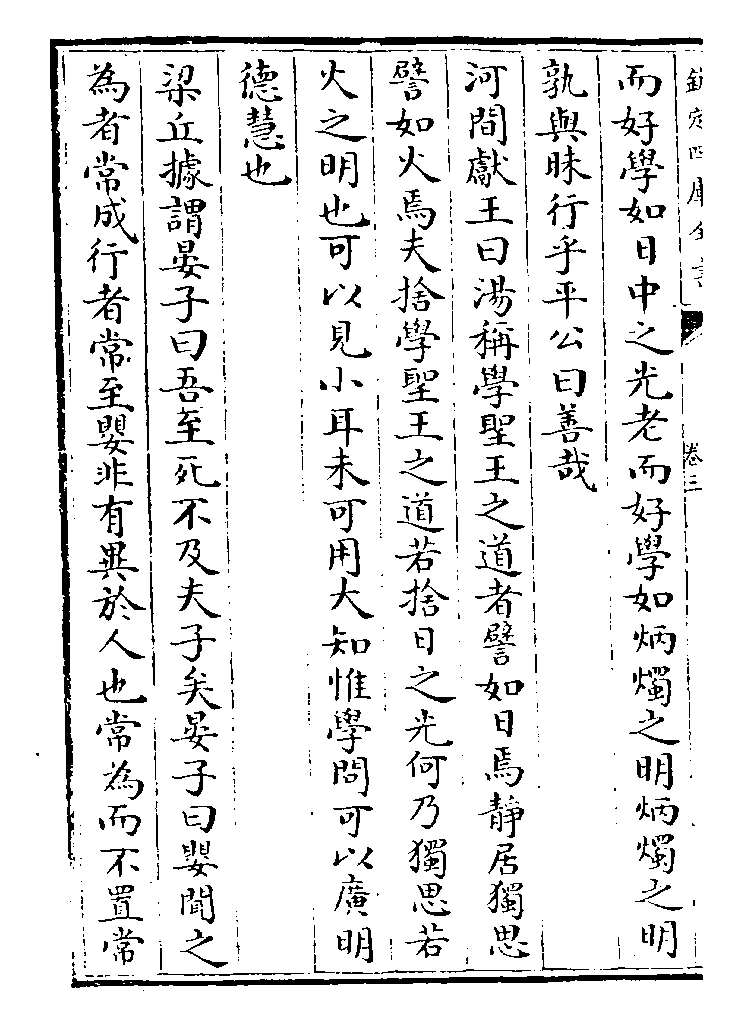 欽定四庫全書 卷三
而好學如日中之光老而好學如炳燭之明炳燭之明
孰與昧行乎平公曰善哉
河間獻王曰湯稱學聖王之道者譬如日焉靜居獨思
譬如火焉夫捨學聖王之道若捨日之光何乃獨思若
火之明也可以見小耳未可用大知惟學問可以廣明
德慧也
梁丘據謂晏子曰吾至死不及夫子矣晏子曰嬰聞之
為者常成行者常至嬰非有異於人也常為而不置常